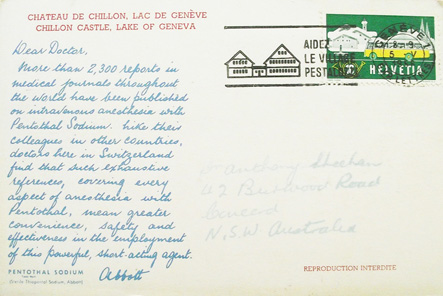 CHATEAU DE CHILLON, LAC DE GENÈVE
CHILLON CASTLE, LAKE OF GENEVA
Dear Doctor,
More than 2,300 reports in
medical journals throughout
the world have been published
on intravenous anesthesia with
Pentothal Sodium. Like their
colleagues in other countries,
doctors here in Switzerland
find that such exhaustive
references, covering every
aspect of anesthesia with
Pentothal, mean greater
convenience, safety and
effectiveness in the employment
of this powerful, short-acting agent.
Abbott
PENTOTHAL SODIUM
Sodium, Abbott)
AIDEZ
LE VILLAGE
PESTALOZZI
GENÈVE 1
HELVETIA
Anthony
42 Road
Concord
N.S.W Australia
REPRODUCTION INTERDITE